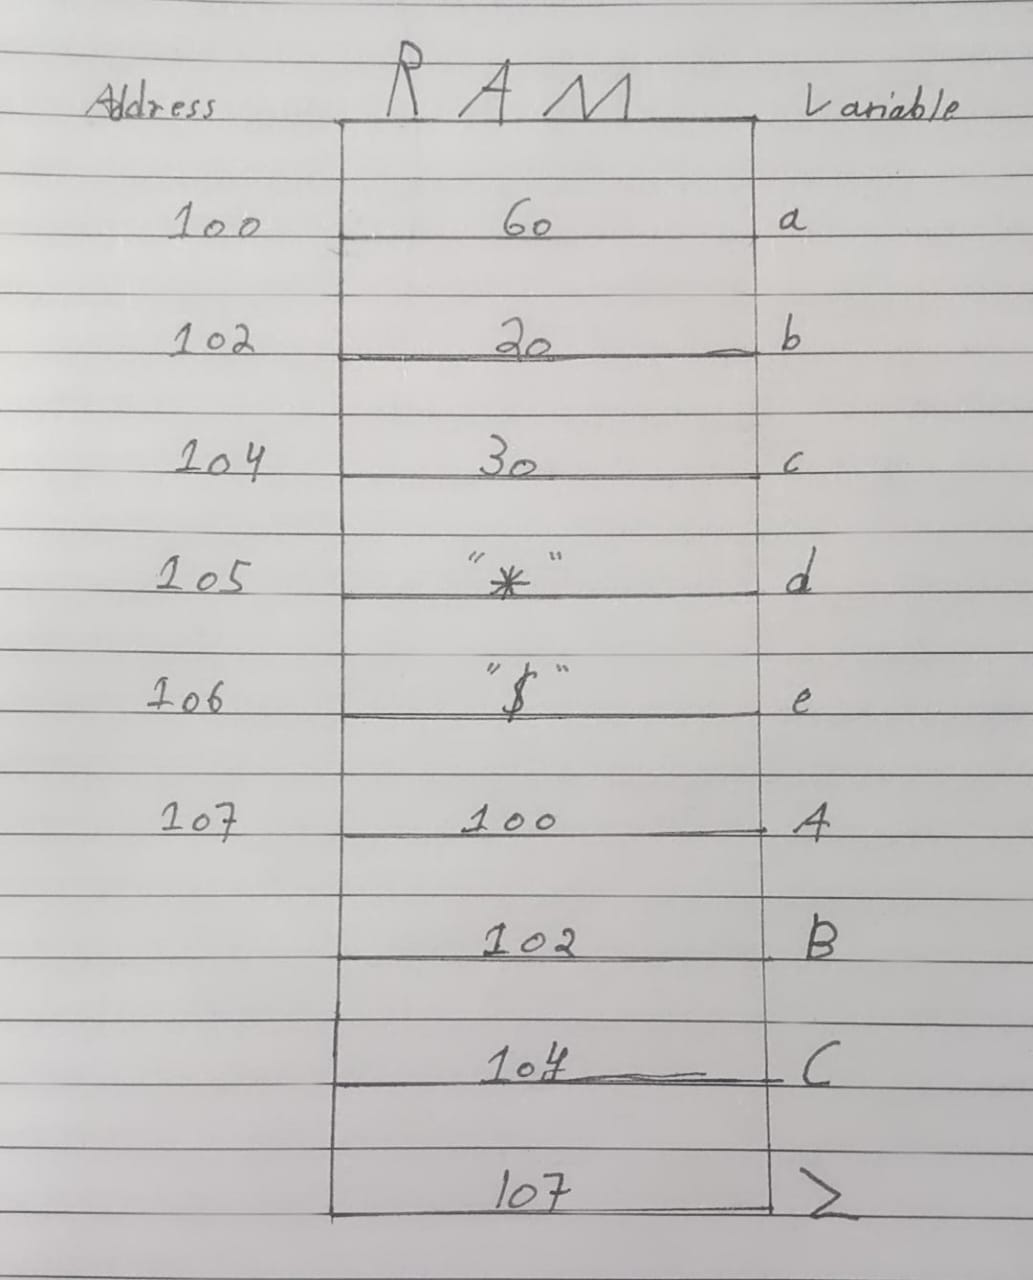 Address RAM Variable
100 60 a
102 20 b
104 30 c
105 "*" d
106 "$" e
107 100 A
102 B
104 C
107 Σ